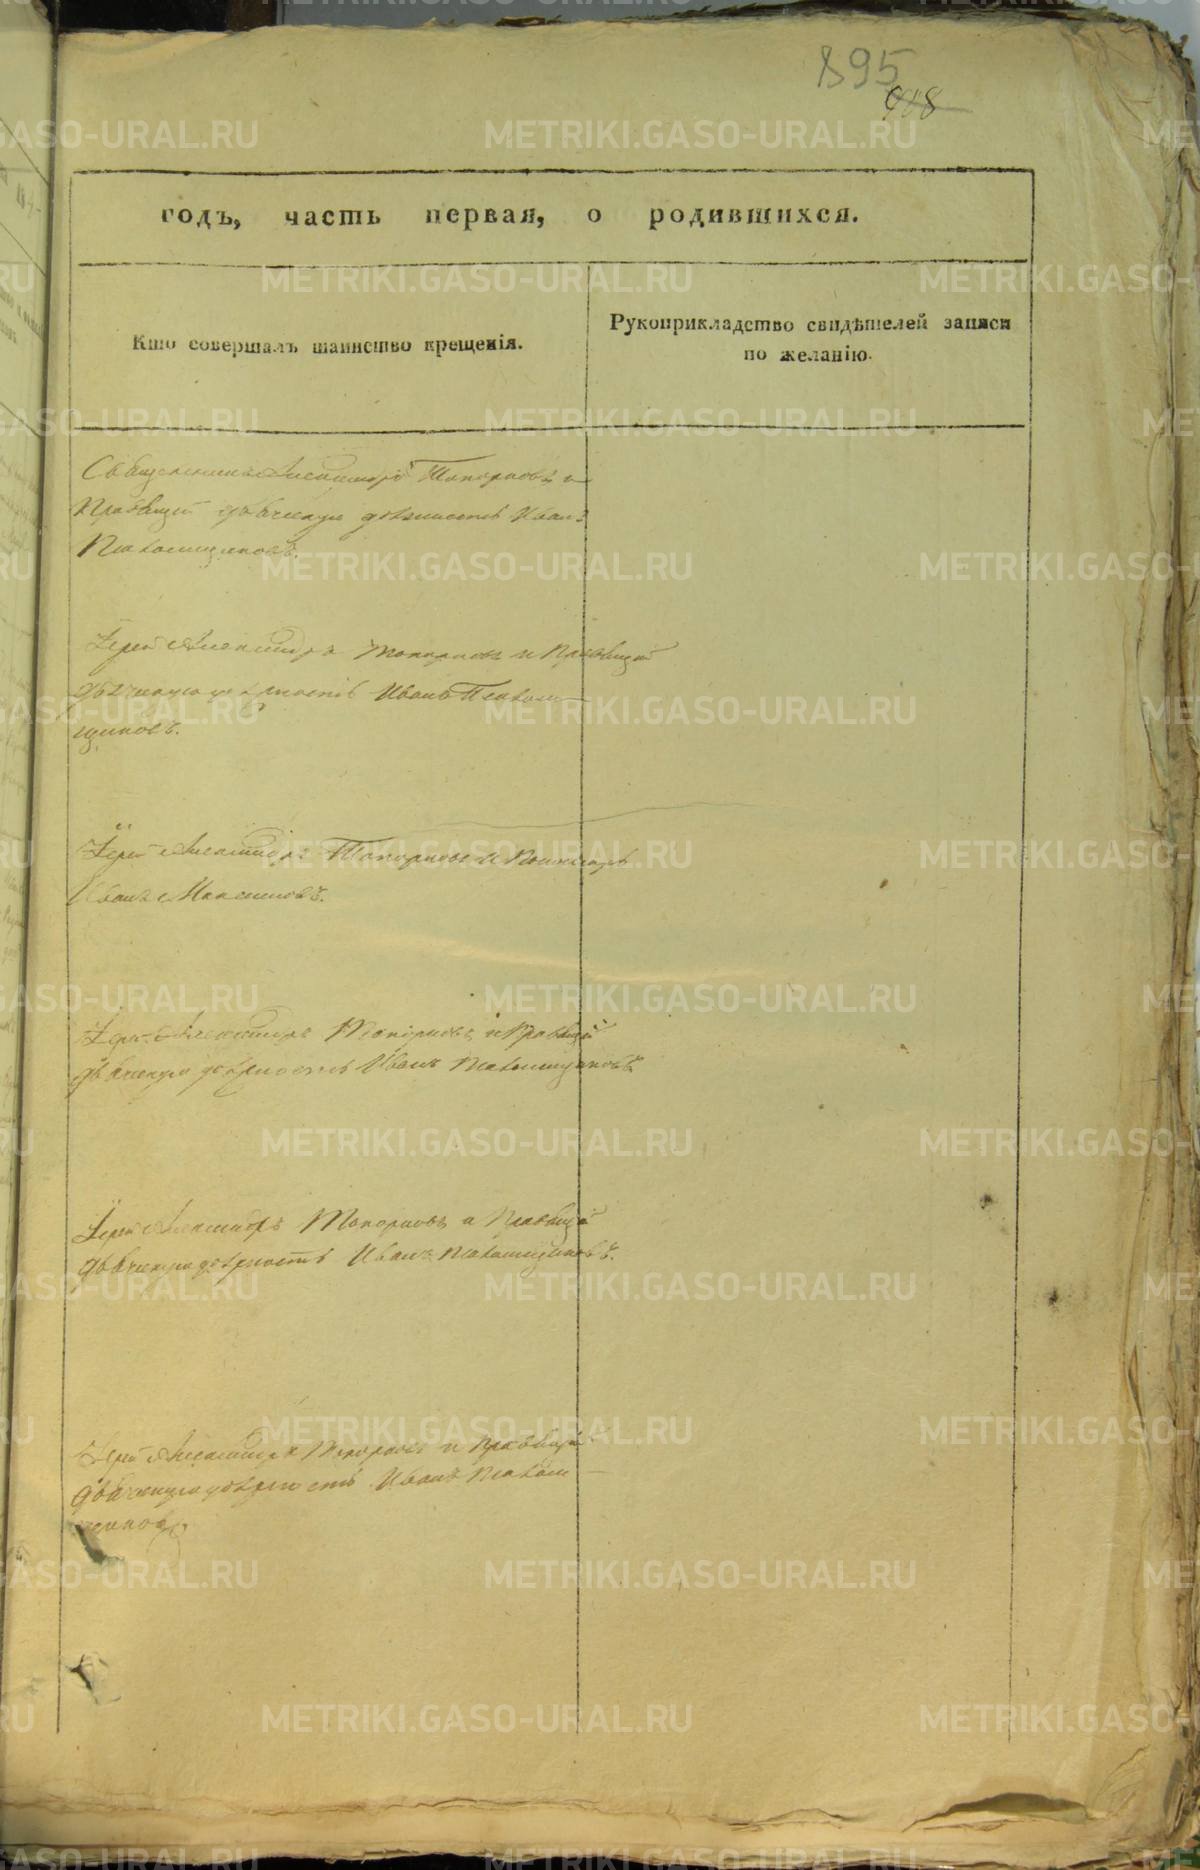 895
908
годъ, часть первая, о родившихся.
Кто совершалъ таинство крещенія.
Рукоприкладство свидѣтелей записи
по желанію.
Священникъ Александръ Топорковъ и
Правящій дьяческую должность Иванъ
Плотниковъ.
Іерей Александръ Топорковъ и Правящій
дьяческую должность Иванъ
щиковъ.
Іерей Александръ Топорковъ и Пономарь
Иванъ Максимовъ.
Іерей Александръ Топорковъ и Правящій
дьяческую должность Иванъ
Іерей Александръ Топорковъ и Правящій
дьяческую должность Иванъ
Іерей Александръ Топорковъ и Правящій
дьяческую должность Иванъ
щиковъ
METRIKI.GASO-URAL.RU